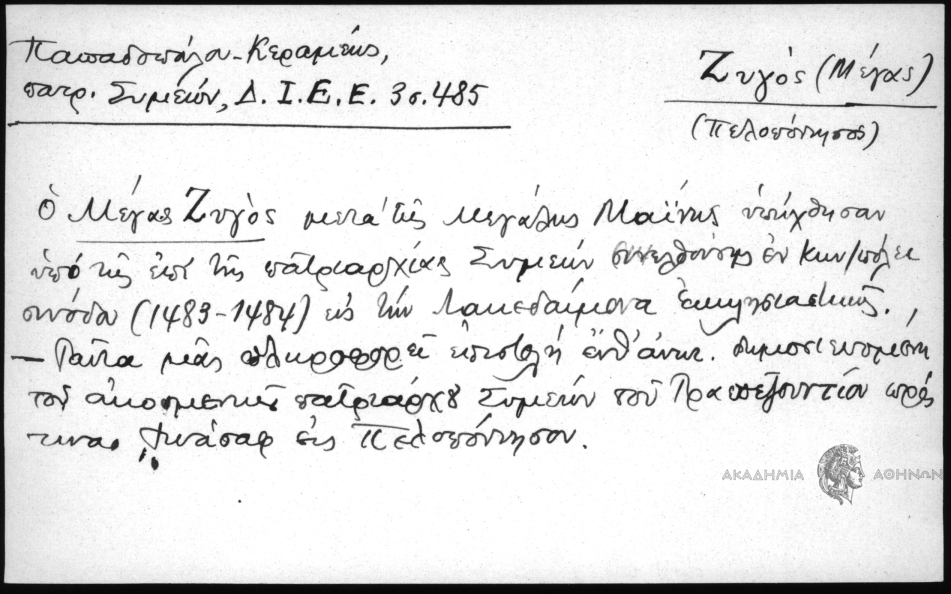 Παπαδοπούλου-Κεραμέως,
πατρ. Συμεών, Δ.Ι.Ε.Ε. 3 σ. 485
Ζυγὸς (Μέγας)
(Πελοπόννησος)
Ὁ Μέγας Ζυγὸς μετὰ τῆς Μεγάλης Μαΐνης ὑπήχθησαν
ὑπὸ τῆς ἐπὶ τῆς πατριαρχίας Συμεών συνελθούσης ἐν Κων/πόλει
συνόδου (1483-1484) εἰς τὴν Λακεδαίμονα ἐκκλησιαστικῶς.
— Ταῦτα μᾶς πληροφορεῖ ἐπιστολή ἐνθ' ἀνωτ. δημοσιευομένη
τοῦ οἰκουμενικοῦ πατριάρχου Συμεών τοῦ Τραπεζουντίου πρός
τινα εἰς Πελοπόννησον.
ΑΚΑΔΗΜΙΑ ΑΘΗΝΩΝ